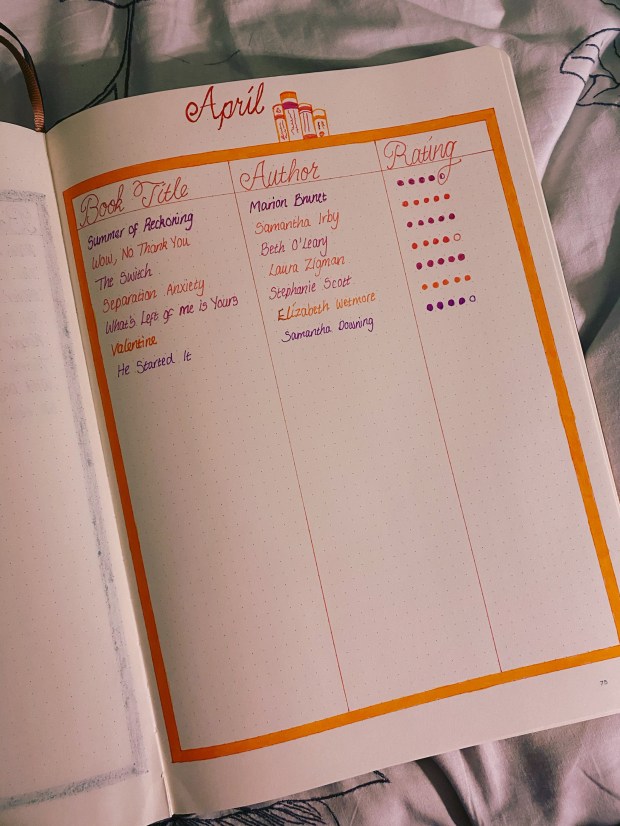 April
Book Title Author Rating
Summer of Reckoning Marion Brunet
Wow, No Thank You Samantha Irby
The Switch Beth O'Leary
Separation Anxiety Laura Zigman
What's Left of me is Yours Stephanie Scott
Valentine Elizabeth Wetmore
He Started It Samantha Downing
75